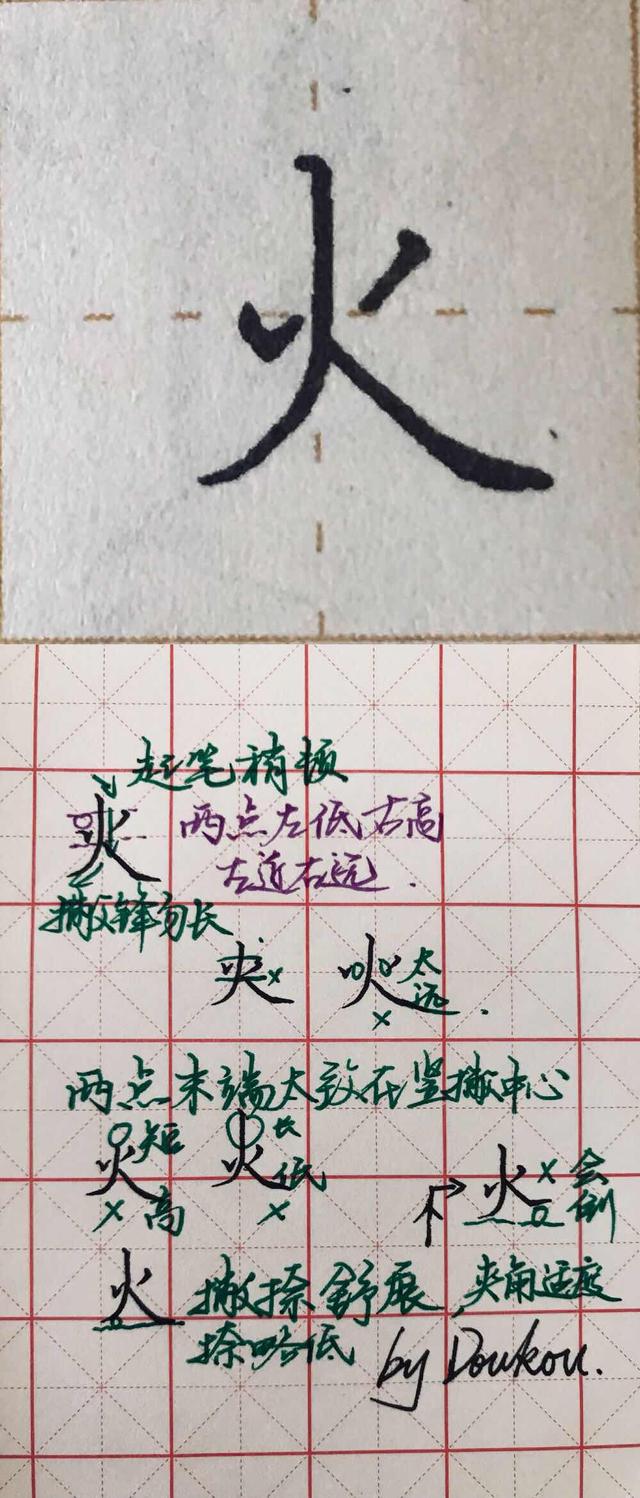 火
起笔稍顿
火
两点左低右高
左近右远.
撇锋勿长
火 ×
火 太远.
×
两点末端大致在竖撇中心
火 短
× 高
火 长
低
×
火 × 会倒
火
撇捺舒展,夹角适度
捺略低
by Doukou.